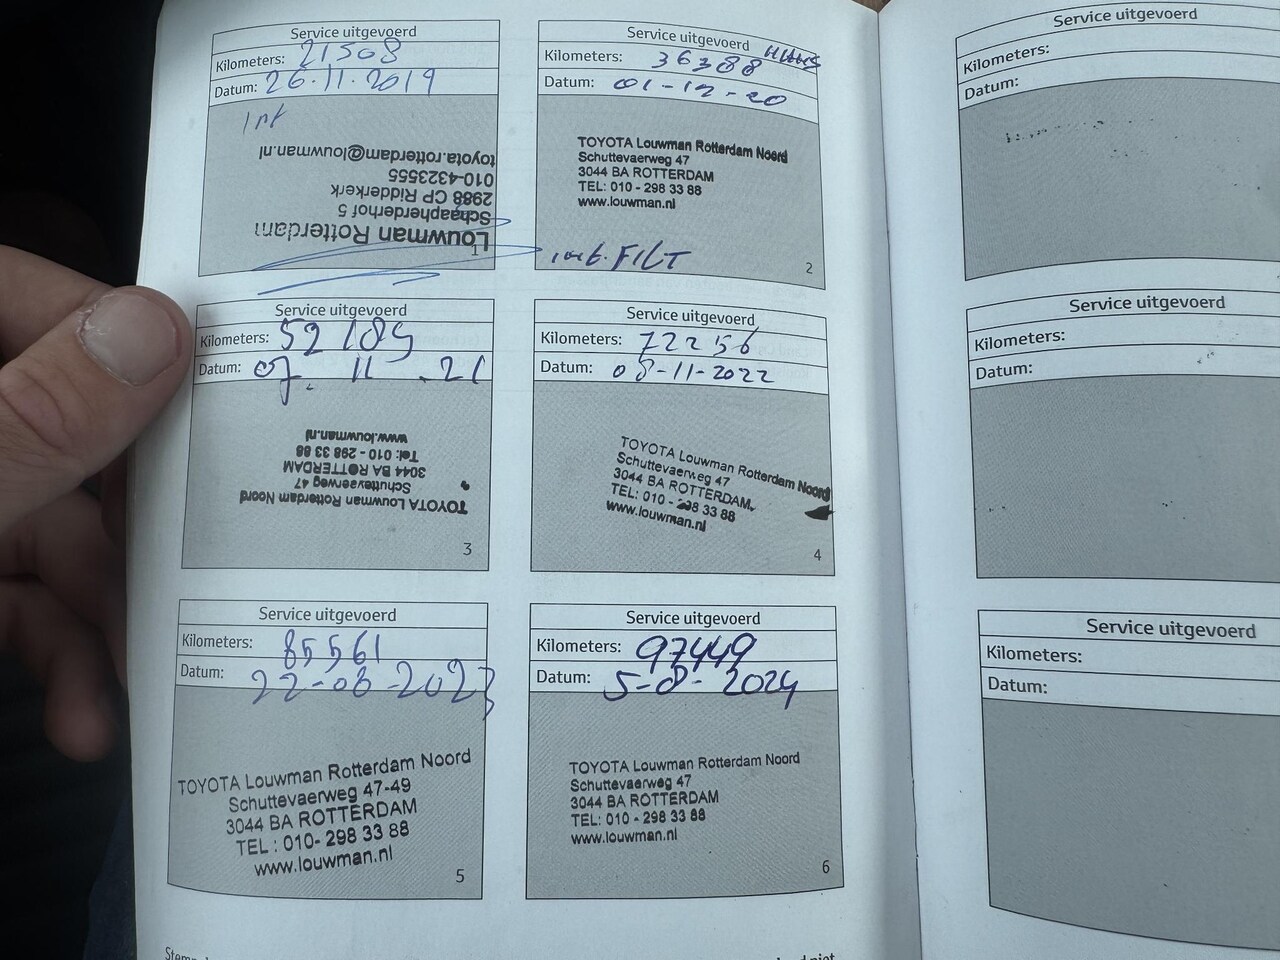 Service uitgevoerd
Kilometers: 21508
Datum: 26.11.2019
Int
toyota.rotterdam@louwman.nl
010-4323555
2988 CP Ridderkerk
Schaapherderhof 5
Louwman Rotterdam
1
Service uitgevoerd
Kilometers: 36388
Datum: 01-12-20
TOYOTA Louwman Rotterdam Noord
Schuttevaerweg 47
3044 BA ROTTERDAM
TEL: 010 - 298 33 88
www.louwman.nl
int. FILT
2
Service uitgevoerd
Kilometers: 52189
Datum: 07.11.21
TOYOTA Louwman Rotterdam Noord
Schuttevaerweg 47
3044 BA ROTTERDAM
Tel: 010 - 298 33 88
www.louwman.nl
3
Service uitgevoerd
Kilometers: 72256
Datum: 08-11-2022
TOYOTA Louwman Rotterdam Noord
Schuttevaerweg 47
3044 BA ROTTERDAM
TEL: 010 - 298 33 88
www.louwman.nl
4
Service uitgevoerd
Kilometers: 85561
Datum: 22-08-2023
TOYOTA Louwman Rotterdam Noord
Schuttevaerweg 47-49
3044 BA ROTTERDAM
TEL : 010- 298 33 88
www.louwman.nl
5
Service uitgevoerd
Kilometers: 97449
Datum: 5-8-2024
TOYOTA Louwman Rotterdam Noord
Schuttevaerweg 47
3044 BA ROTTERDAM
TEL: 010 - 298 33 88
www.louwman.nl
6
Service uitgevoerd
Kilometers:
Datum:
Service uitgevoerd
Kilometers:
Datum:
Service uitgevoerd
Kilometers:
Datum: